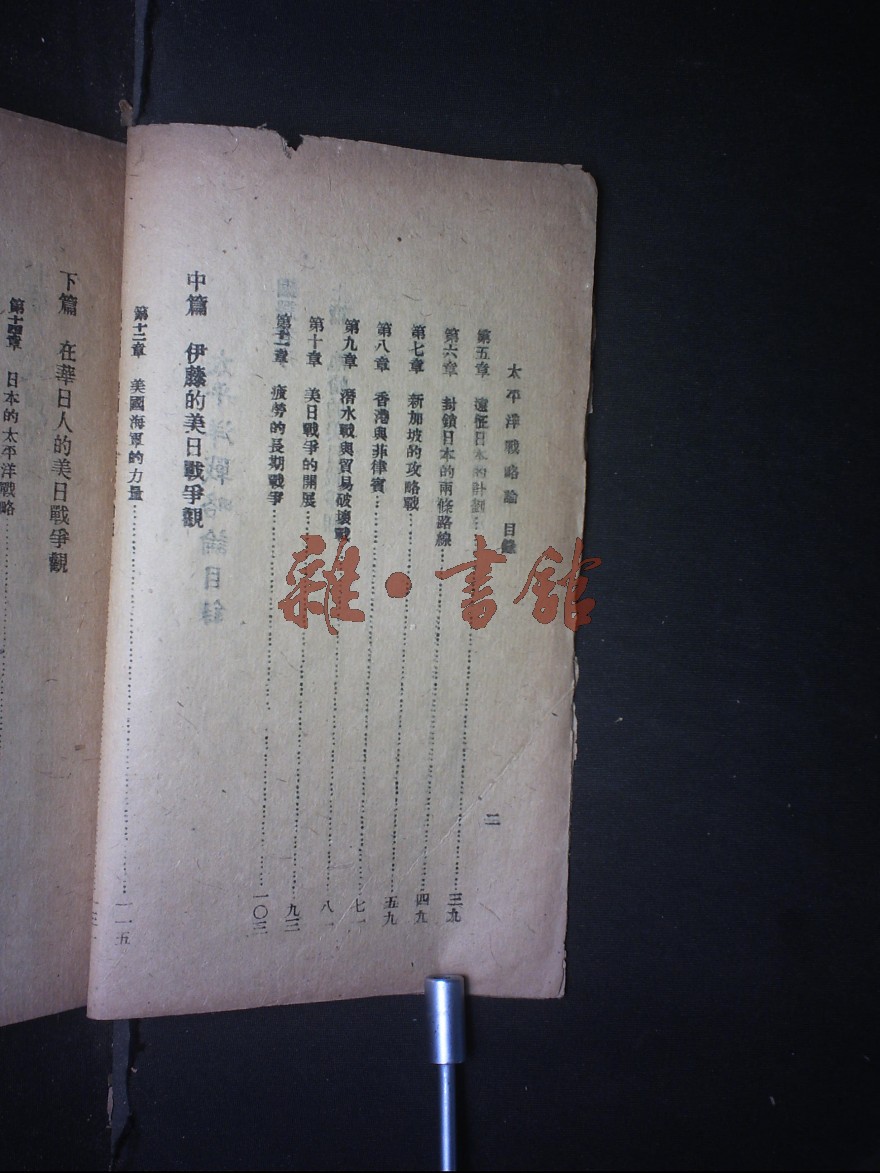 太平洋戰略論 目錄
二
第五章 遠征日本的計劃……三九
第六章 封鎖日本的兩條路線……四九
第七章 新加坡的攻略戰……五九
第八章 香港與菲律賓……七一
第九章 潛水戰與貿易破壞戰……八一
第十章 美日戰爭的開展……九三
第十一章 疲勞的長期戰爭……一〇三
中篇 伊藤的美日戰爭觀
第十二章 美國海軍的力量……一一五
下篇 在華日人的美日戰爭觀
第十四章 日本的太平洋戰略……
雜·書舘